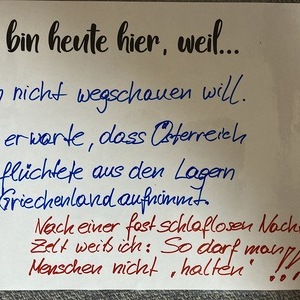 bin heute hier, weil...
nicht wegschauen will.
erwarte, dass Österreich
flüchtete aus den Lagern
Griechenland aufnimmt.
Nach einer fast schlaflosen Nacht
Zelt weiß ich: So darf man
Menschen nicht "halten" !!!